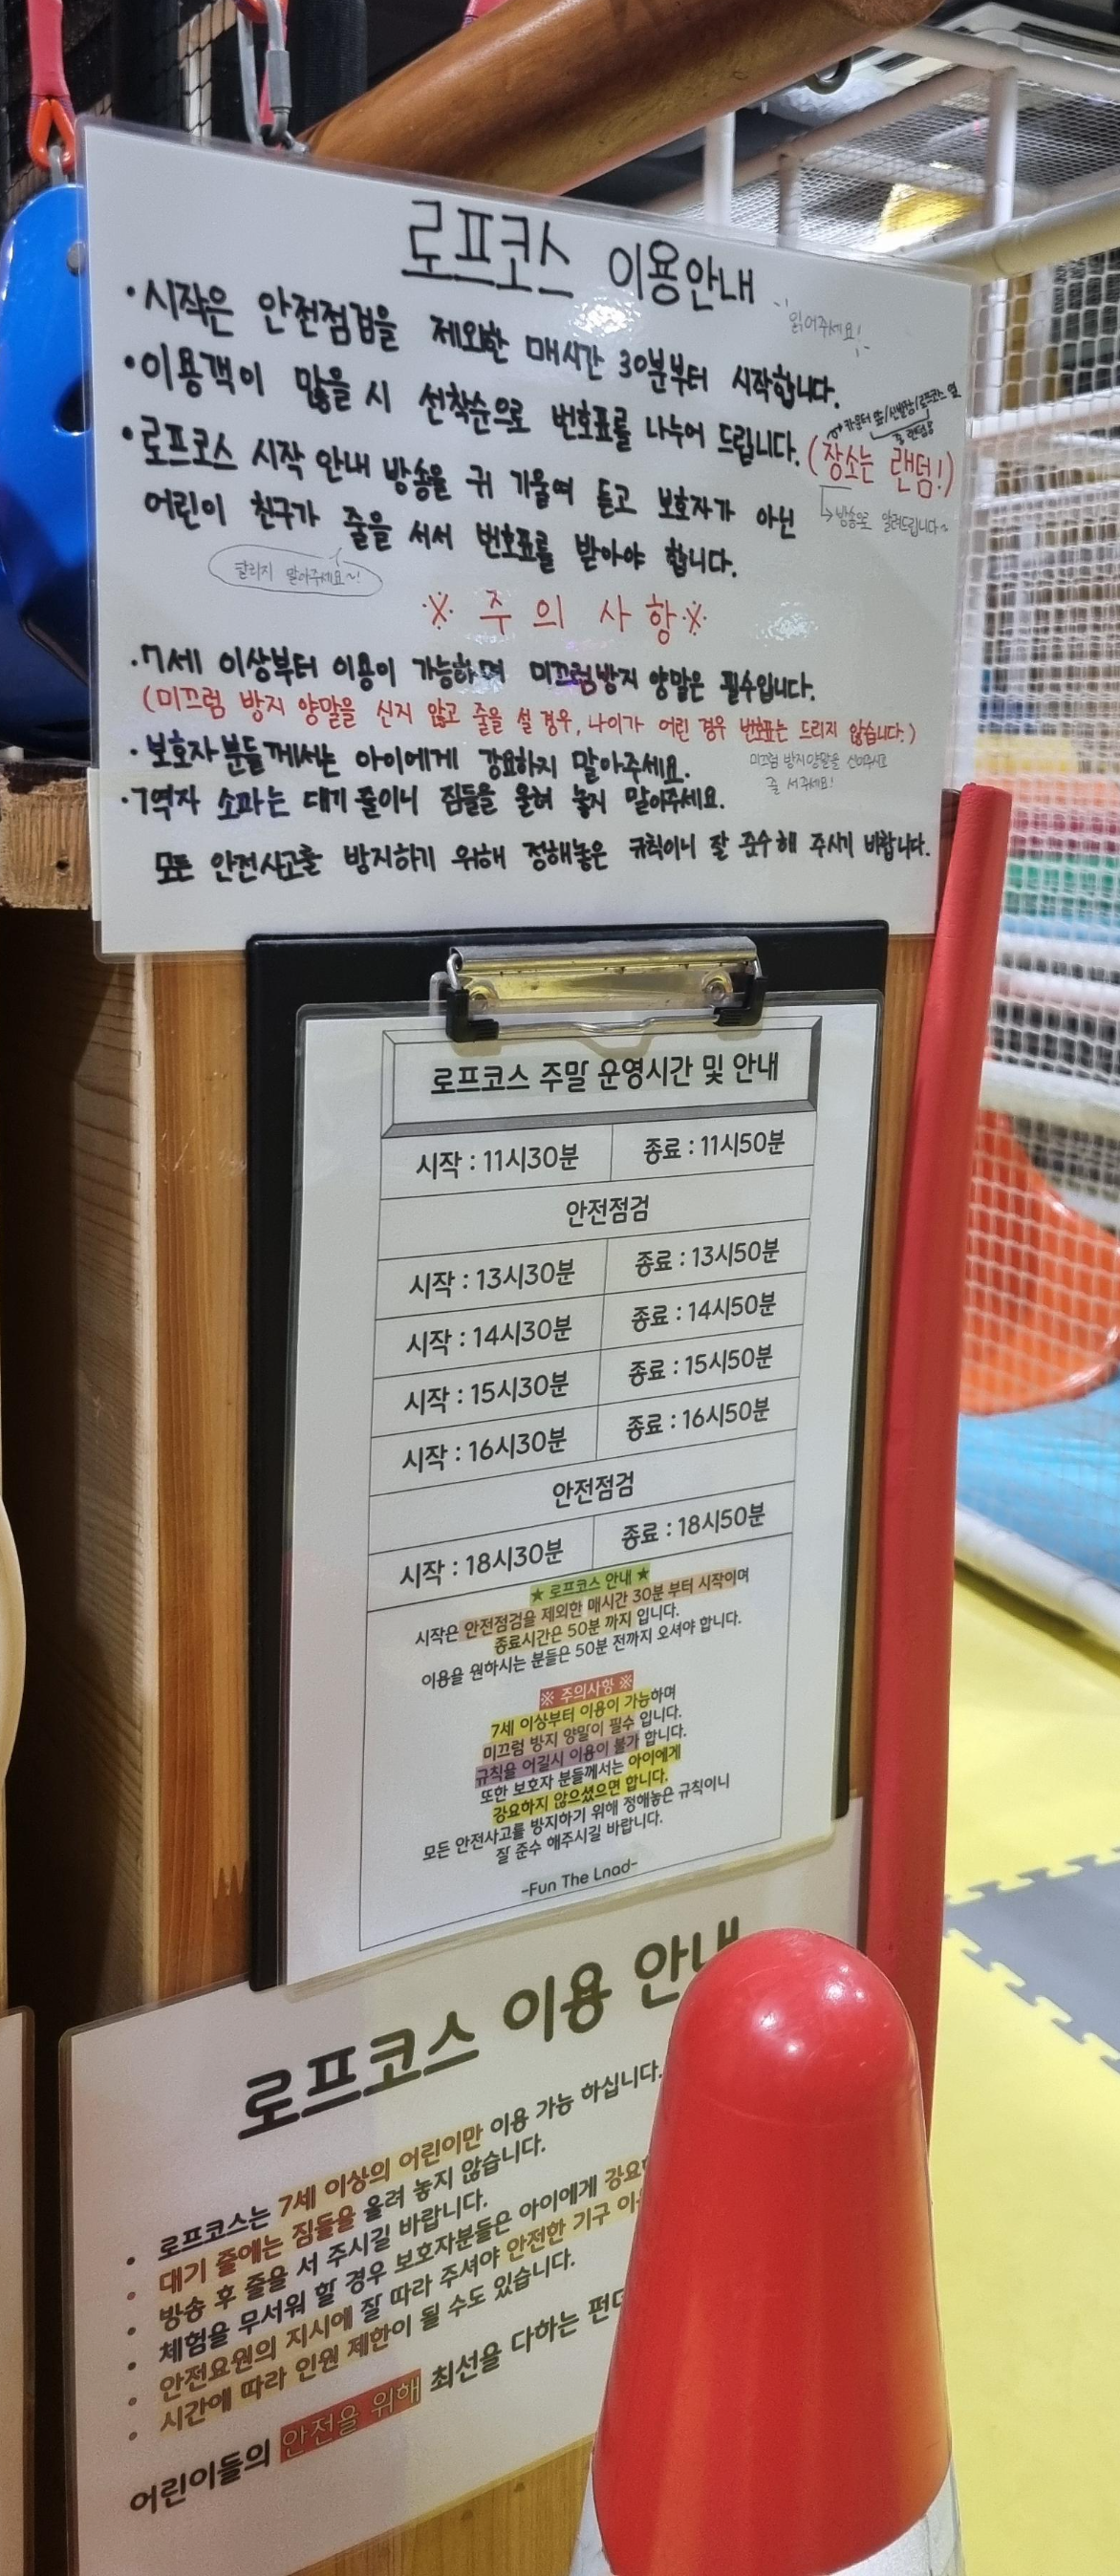 로프코스 이용안내
읽어주세요!
• 시작은 안전점검을 제외한 매시간 30분부터 시작합니다.
• 이용객이 많을 시 선착순으로 번호표를 나누어 드립니다. (장소는 랜덤!)
카운터 앞/신발장/로프코스 옆
중 랜덤
방송으로 알려드립니다~
• 로프코스 시작 안내 방송을 귀 기울여 듣고 보호자가 아닌
어린이 친구가 줄을 서서 번호표를 받아야 합니다.
말아주세요~!
※ 주 의 사 항 ※
• 7세 이상부터 이용이 가능하며 미끄럼방지 양말은 필수입니다.
(미끄럼 방지 양말을 신지 않고 줄을 설 경우, 나이가 어린 경우 번호표는 드리지 않습니다.)
미끄럼 방지양말을 신어주시고
줄 서주세요!
• 보호자분들께서는 아이에게 강요하지 말아주세요.
• ㄱ역자 소파는 대기 줄이니 짐들을 올려 놓지 말아주세요.
모든 안전사고를 방지하기 위해 정해놓은 규칙이니 잘 준수해 주시기 바랍니다.
로프코스 주말 운영시간 및 안내
시작 : 11시30분 종료 : 11시50분
안전점검
시작 : 13시30분 종료 : 13시50분
시작 : 14시30분 종료 : 14시50분
시작 : 15시30분 종료 : 15시50분
시작 : 16시30분 종료 : 16시50분
안전점검
시작 : 18시30분 종료 : 18시50분
★ 로프코스 안내 ★
시작은 안전점검을 제외한 매시간 30분 부터 시작이며
종료시간은 50분 까지 입니다.
이용을 원하시는 분들은 50분 전까지 오셔야 합니다.
※ 주의사항 ※
7세 이상부터 이용이 가능하며
미끄럼 방지 양말이 필수 입니다.
규칙을 어길시 이용이 불가 합니다.
또한 보호자 분들께서는 아이에게
강요하지 않으셨으면 합니다.
모든 안전사고를 방지하기 위해 정해놓은 규칙이니
잘 준수 해주시길 바랍니다.
-Fun The Lnad-
로프코스 이용 안내
• 로프코스는 7세 이상의 어린이만 이용 가능 하십니다.
• 대기 줄에는 짐들을 올려 놓지 않습니다.
• 방송 후 줄을 서 주시길 바랍니다.
• 체험을 무서워 할 경우 보호자분들은 아이에게 강요
• 안전요원의 지시에 잘 따라 주셔야 안전한 기구
• 시간에 따라 인원 제한이 될 수도 있습니다.
어린이들의 안전을 위해 최선을 다하는